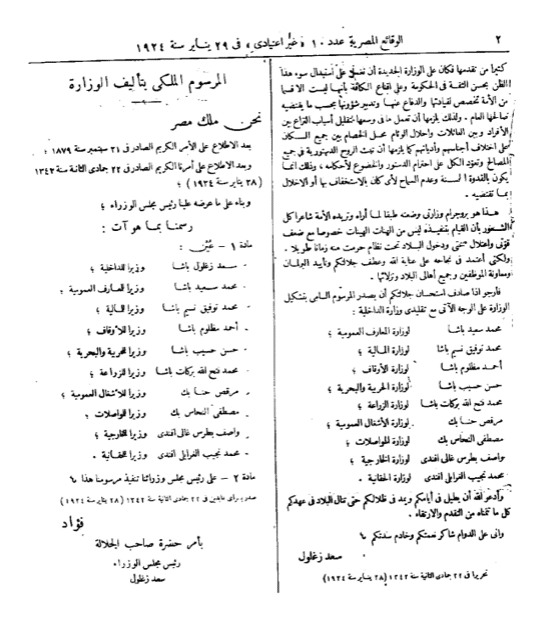 ٢
الوقائع المصرية عدد ١٠ «غير اعتيادى» فى ٢٩ يناير سنة ١٩٢٤
كثيرا من تقدمها فكان على الوزارة الجديدة أن تعمل على استبدال سوء هذا
الظن بحسن الثقة فى الحكومة وعلى إقناع الكافة بأنها ليست الا قسما
من الأمة تخصص لقيادتها والدفاع عنها وتدبير شؤونها بحسب ما يقتضيه
صالحها العام . ولذلك يلزمها أن تعمل ما فى وسعها لتقليل أسباب النزاع بين
الأفراد وبين العائلات واحلال الوئام محل الخصام بين جميع السكان
على اختلاف أجناسهم وأديانهم كما يلزمها أن تبث الروح الدستورية فى جميع
المصالح وتعود الكل على احترام الدستور والخضوع لأحكامه ، وذلك انما
يكون بالقدوة الحسنة وعدم السماح لأى كان بالاستخفاف بها أو الاخلال
بما تقتضيه .
هذا هو بروجرام وزارتى وضعته طبقا لما أراه وتريده الأمة شاعرا كل
الشعور بأن القيام بتنفيذه ليس من الهنات الهينات خصوصا مع ضعف
قوتى واعتلال صحتى ودخول البلاد تحت نظام حرمت منه زمانا طويلا .
ولكنى أعتمد فى نجاحه على عناية الله وعطف جلالتكم وتأييد البرلمان
ومعاونة الموظفين وجميع أهالى البلاد ونزلائها .
فأرجو اذا صادف استحسان جلالتكم أن يصدر المرسوم السامى بتشكيل
الوزارة على الوجه الآتى مع تقليدى وزارة الداخلية :
محمد سعيد باشا لوزارة المعارف العمومية ؛
محمد توفيق نسيم باشا لوزارة المالية ؛
أحمد مظلوم باشا لوزارة الأوقاف ؛
حسن حسيب باشا لوزارة الحربية والبحرية ؛
محمد فتح الله بركات باشا لوزارة الزراعة ؛
مرقص حنا بك لوزارة الأشغال العمومية ؛
مصطفى النحاس بك لوزارة المواصلات ؛
واصف بطرس غالى افندى لوزارة الخارجية ؛
محمد نجيب الغرابلى افندى لوزارة الحقانية .
وأدعو الله أن يطيل فى أيامكم ويمد فى ظلالكم حتى تنال البلاد فى عهدكم
كل ما تتمناه من التقدم والارتقاء .
وانى على الدوام شاكر نعمتكم وخادم سدتكم ،
سعد زغلول
تحريرا فى ٢٢ جمادى الثانية سنة ١٣٤٢ (٢٨ يناير سنة ١٩٢٤)
المرسوم الملكى بتأليف الوزارة
نحن ملك مصر
بعد الاطلاع على الأمر الكريم الصادر فى ٢١ سبتمبر سنة ١٨٧٩ ؛
وبعد الاطلاع على أمرنا الكريم الصادر فى ٢٢ جمادى الثانية سنة ١٣٤٢
(٢٨ يناير سنة ١٩٢٤) ؛
وبناء على ما عرضه علينا رئيس مجلس الوزراء ؛
رسمنا بما هو آت :
مادة ١ - عُيِّن :
- سعد زغلول باشا وزيرا للداخلية ؛
- محمد سعيد باشا وزيرا للمعارف العمومية ؛
- محمد توفيق نسيم باشا وزيرا للمالية ؛
- أحمد مظلوم باشا وزيرا للأوقاف ؛
- حسن حسيب باشا وزيرا للحربية والبحرية ؛
- محمد فتح الله بركات باشا وزيرا للزراعة ؛
- مرقص حنا بك وزيرا للأشغال العمومية ؛
- مصطفى النحاس بك وزيرا للمواصلات ؛
- واصف بطرس غالى افندى وزيرا للخارجية ؛
- محمد نجيب الغرابلى افندى وزيرا للحقانية .
مادة ٢ - على رئيس مجلس وزرائنا تنفيذ مرسومنا هذا ،
صدر بسراى عابدين فى ٢٢ جمادى الثانية سنة ١٣٤٢ (٢٨ يناير سنة ١٩٢٤)
فؤاد
بأمر حضرة صاحب الجلالة
رئيس مجلس الوزراء
سعد زغلول